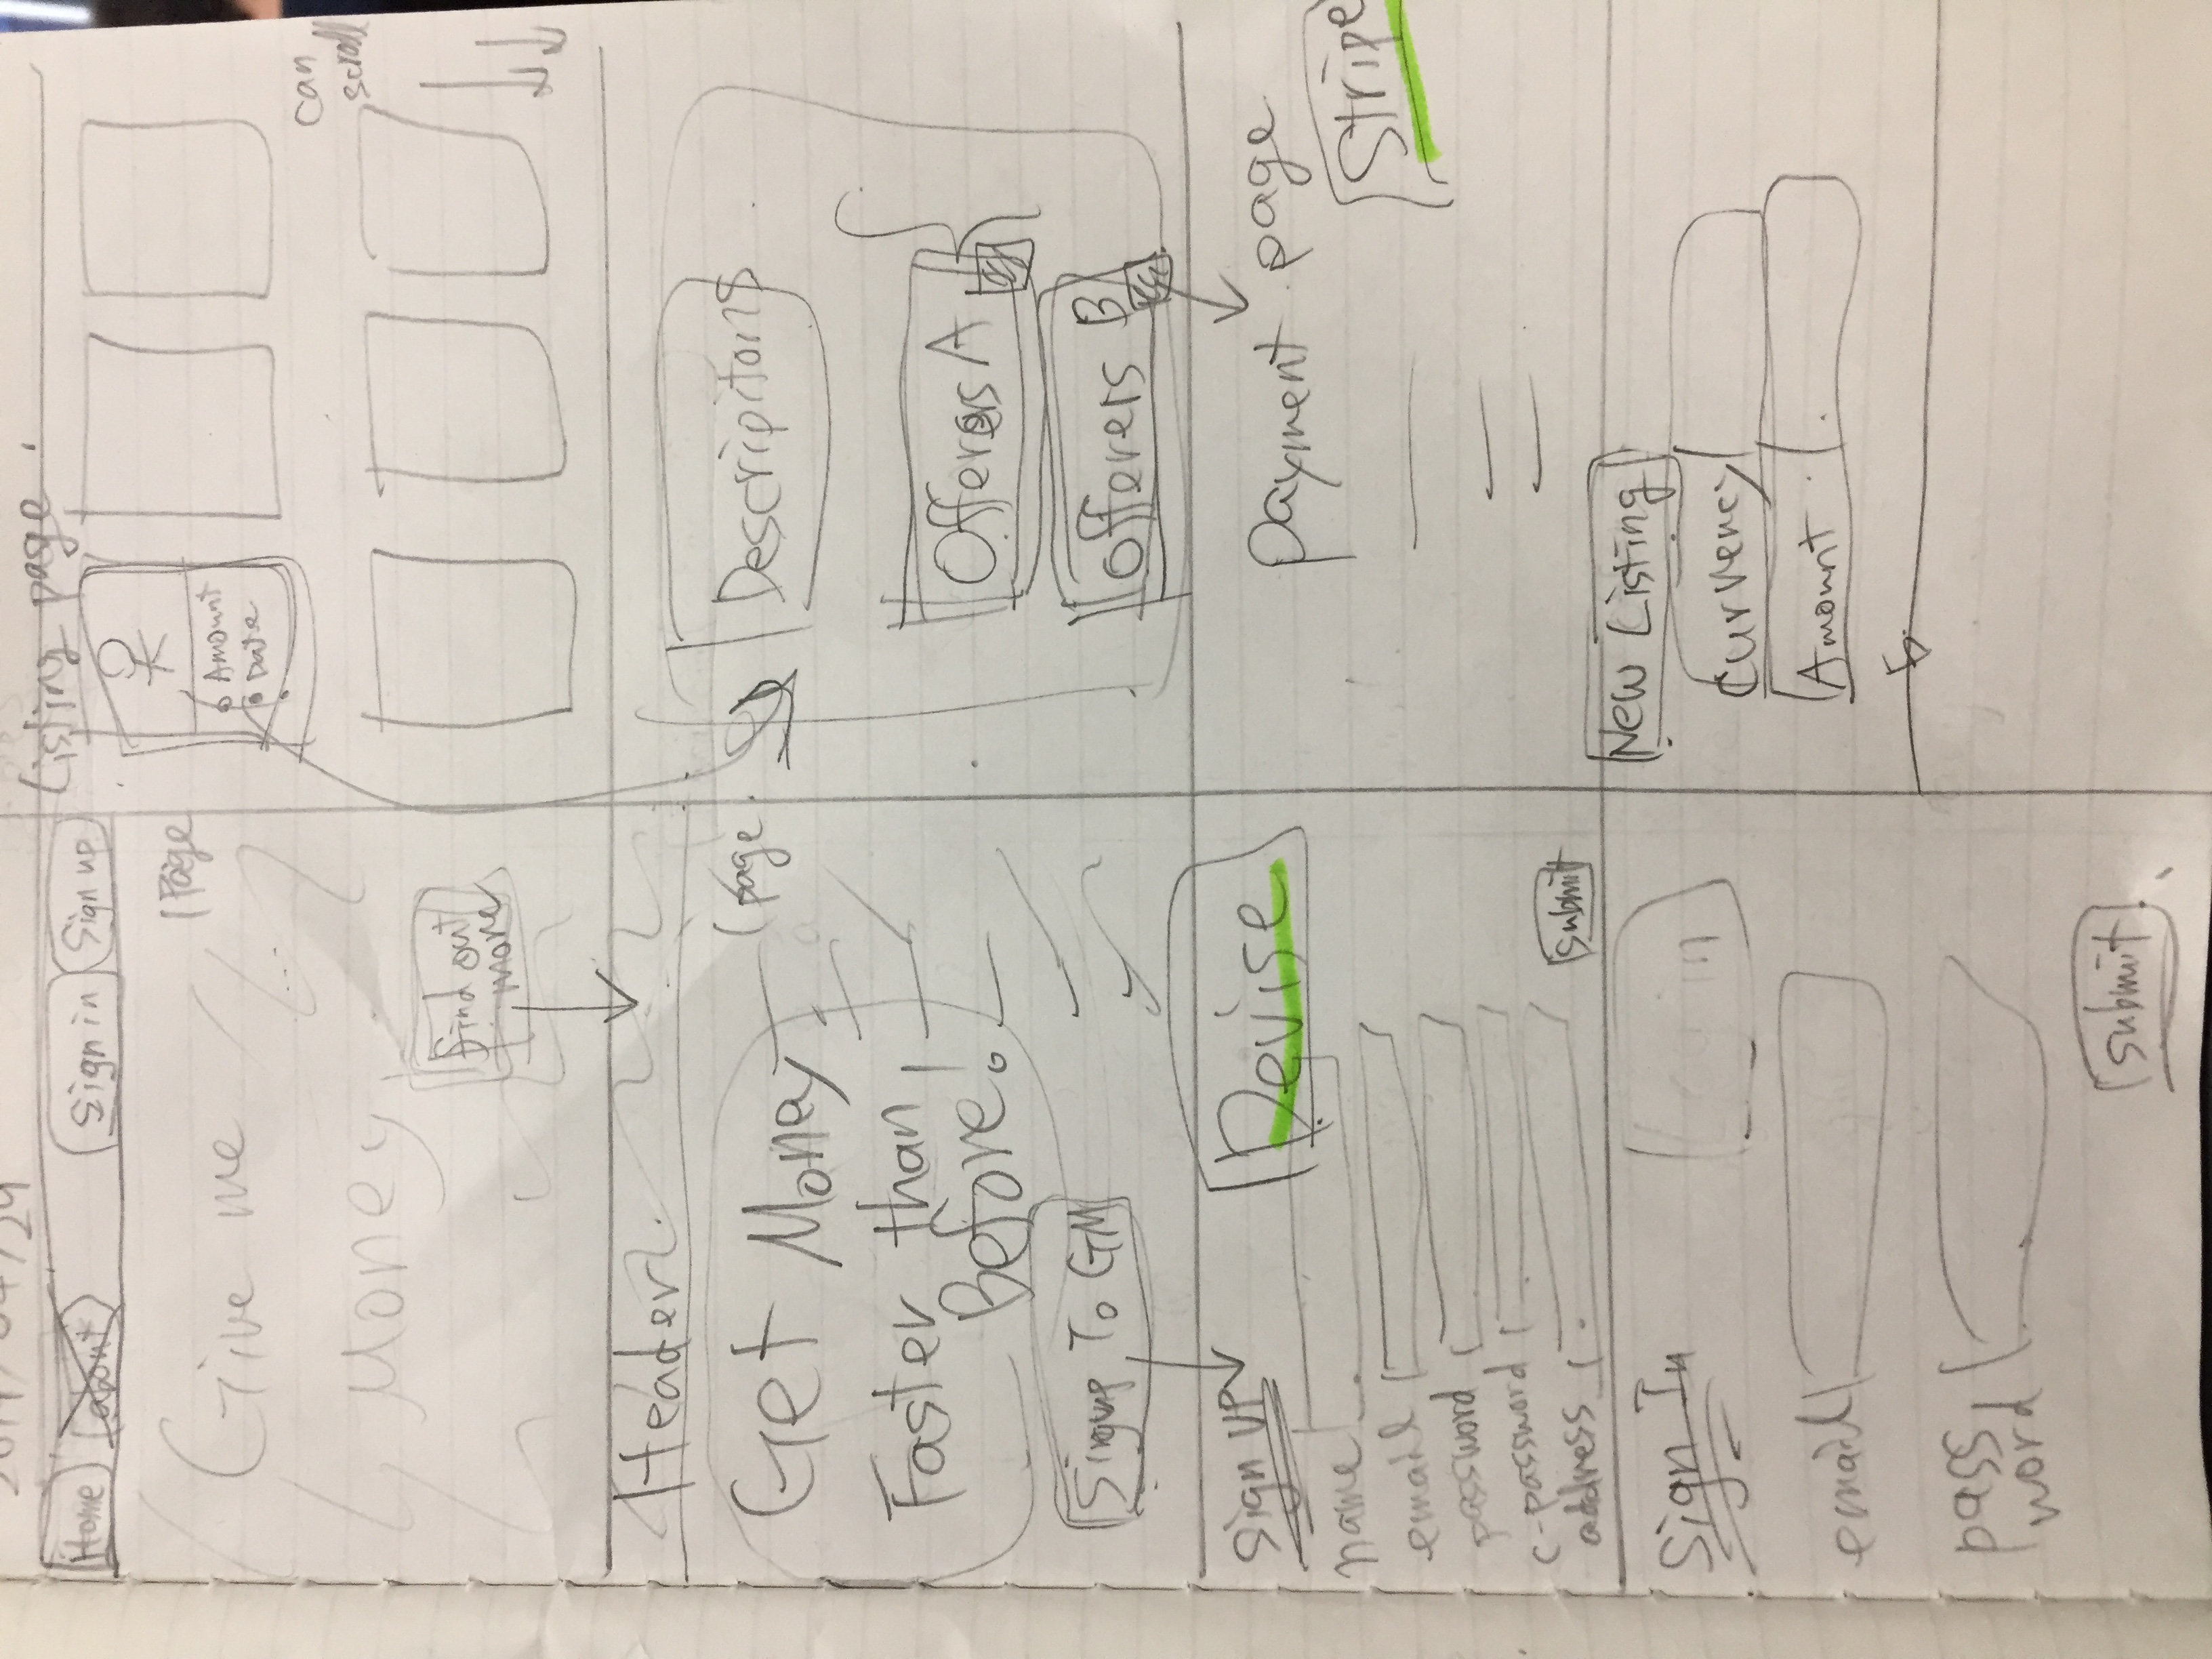 Home about Sign in Sign up
1 Page
Give me
Money
Find out
more
Header
1 page
Get Money
Faster than
Before!
Singup To GM
Sign UP
Devise
name
email
password
c-password
address
Submit
Sign In
email
pass
word
submit
Listing page
Amount
Date
can
scroll
Descripitons
Offerers A
Offerers B
Payment page
Stripe
New Listing
Currency
Amount